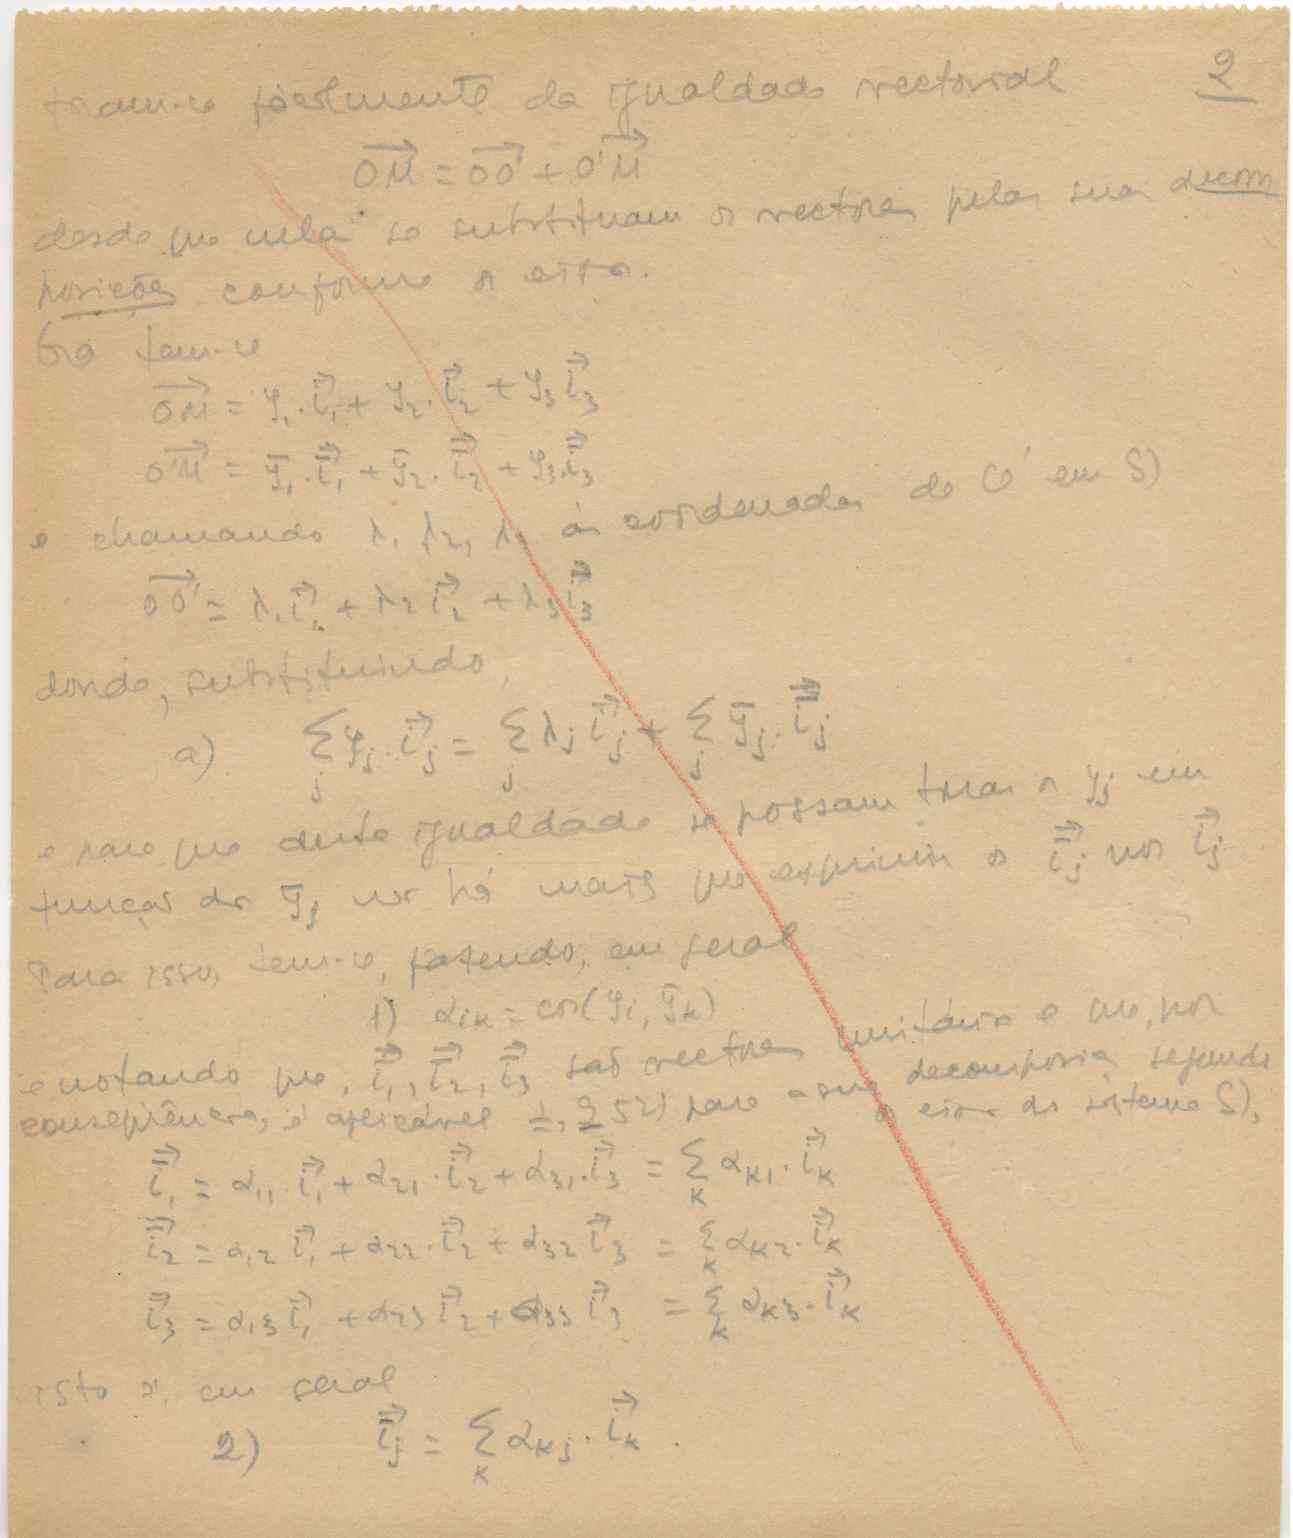 2
tiram-se fàcilmente da igualdade vectorial
OM⃗ = OO'⃗ + O'M⃗
desde que nela se substituam os vectores pelas suas decom
posições conforme os eixos.
Ora tem-se
OM⃗ = y₁.i⃗₁ + y₂.i⃗₂ + y₃i⃗₃
O'M⃗ = ȳ₁.ī⃗₁ + ȳ₂.ī⃗₂ + y₃.ī⃗₃
e chamando λ₁ λ₂, λ₃ às coordenadas de O' em S)
OO'⃗ = λ₁i⃗₁ + λ₂i⃗₂ + λ₃i⃗₃
donde, substituindo,
a) Σⱼ yⱼ.i⃗ⱼ = Σⱼ λⱼi⃗ⱼ + Σⱼ ȳⱼ.ī⃗ⱼ
e para que desta igualdade se possam tirar os yⱼ em
função dos ȳⱼ não há mais que exprimir os ī⃗ⱼ nos i⃗ⱼ
Para isso, tem-se, fazendo, em geral
1) αᵢₖ = cos(yᵢ, ȳₖ)
e notando que, ī⃗₁, ī⃗₂, ī⃗₃ são vectores unitários e que, por
conseqüência, é aplicável 1, § 52) para a sua decomposição segundo
os eixos do sistema S),
ī⃗₁ = α₁₁.i⃗₁ + α₂₁.i⃗₂ + α₃₁.i⃗₃ = Σₖ αₖ₁.i⃗ₖ
ī⃗₂ = α₁₂ i⃗₁ + α₂₂.i⃗₂ + α₃₂ i⃗₃ = Σₖ αₖ₂.i⃗ₖ
ī⃗₃ = α₁₃ i⃗₁ + α₂₃ i⃗₂ + α₃₃ i⃗₃ = Σₖ αₖ₃.i⃗ₖ
isto é, em geral
2) ī⃗ⱼ = Σₖ αₖⱼ.i⃗ₖ.